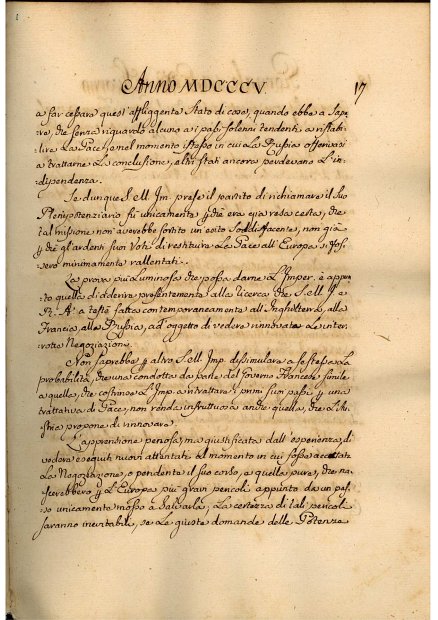 Anno MDCCCV
17
a far cessare quest' affligente Stato di cose, quando ebbe a Sape-
re, che senza riguardo alcuno a i passi solenni tendenti a ristabi-
lire La Pace, e nel momento stesso in cui La Russia offerivasi
a trattarne La conclusione, altri stati ancora perdevano L' in-
dipendenza.
Se dunque S. M. Im. prese il partito di richiamare il Suo
Plenipotenziario fù unicamente p che era già resa certa, che
tal missione non averebbe sortito un esito Soddisfacente, non già
p che gl' ardenti suoi Voti di restituire La Pace all' Europa si fos-
sero minimamente rallentati.
La prova più Luminosa che possa darne L' Imper. è appun-
to quella di aderire presentemente alla ricerca che S. M. I. e
R. A. a testè fatta contemporaneamente all' Inghilterra, alla
Francia, alla Russia, ad oggetto di vedere rinnovate Le inter-
rotte Negoziazioni.
Non saprebbe p altro S. M. Imp. dissimulare a se stessa La
probabilità, che una condotta da parte del Governo Francese simile
a quella, che costrinse L' Imp. a ritrattare i primi suoi passi p una
trattativa di Pace, non renda infruttuosa anche quella, che L' Au-
stria propone di rinnovare.
L' apprensione penosa, ma giustificata dall' esperienza di
vedere eseguiti nuovi attentati nel momento in cui fosse accettata
La Negoziazione, o pendente il suo corso, e quella pure, che na-
scerebbero p L' Europa più gravi pericoli appunto da un pas-
so unicamente mosso a Salvarla, La certezza di tali pericoli
saranno inevitabili, se Le giuste domande delle Potenze